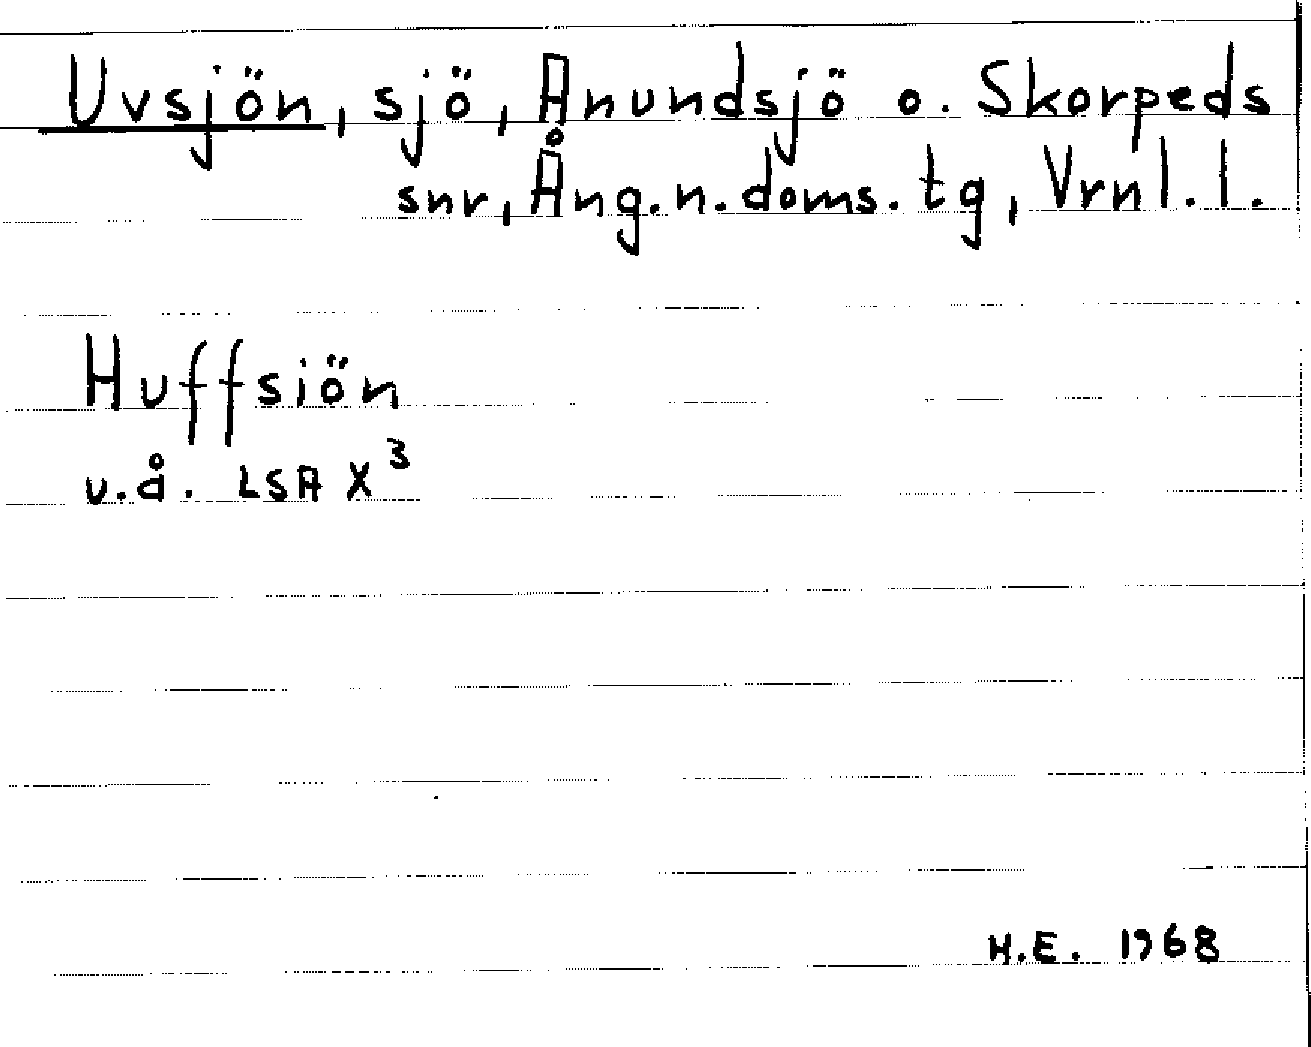 Uvsjön, sjö, Anundsjö o. Skorpeds
snr, Ång.n.doms.tg, Vrnl.l.
Huffsiön
u.å. LSA X³
H.E. 1968